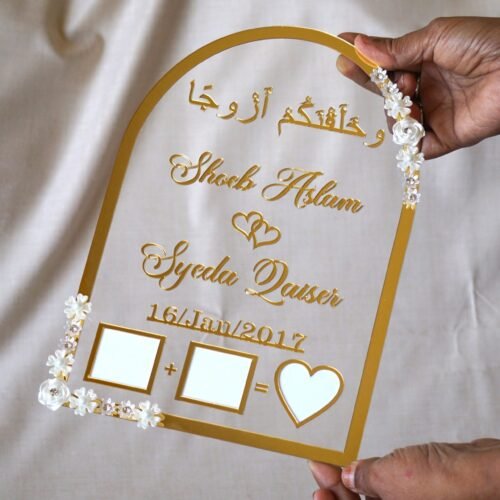 وخَلَقْنَكُم أَزْوَجًا
Shoeb Aslam
Syeda Qaiser
16/Jan/2017
+ =